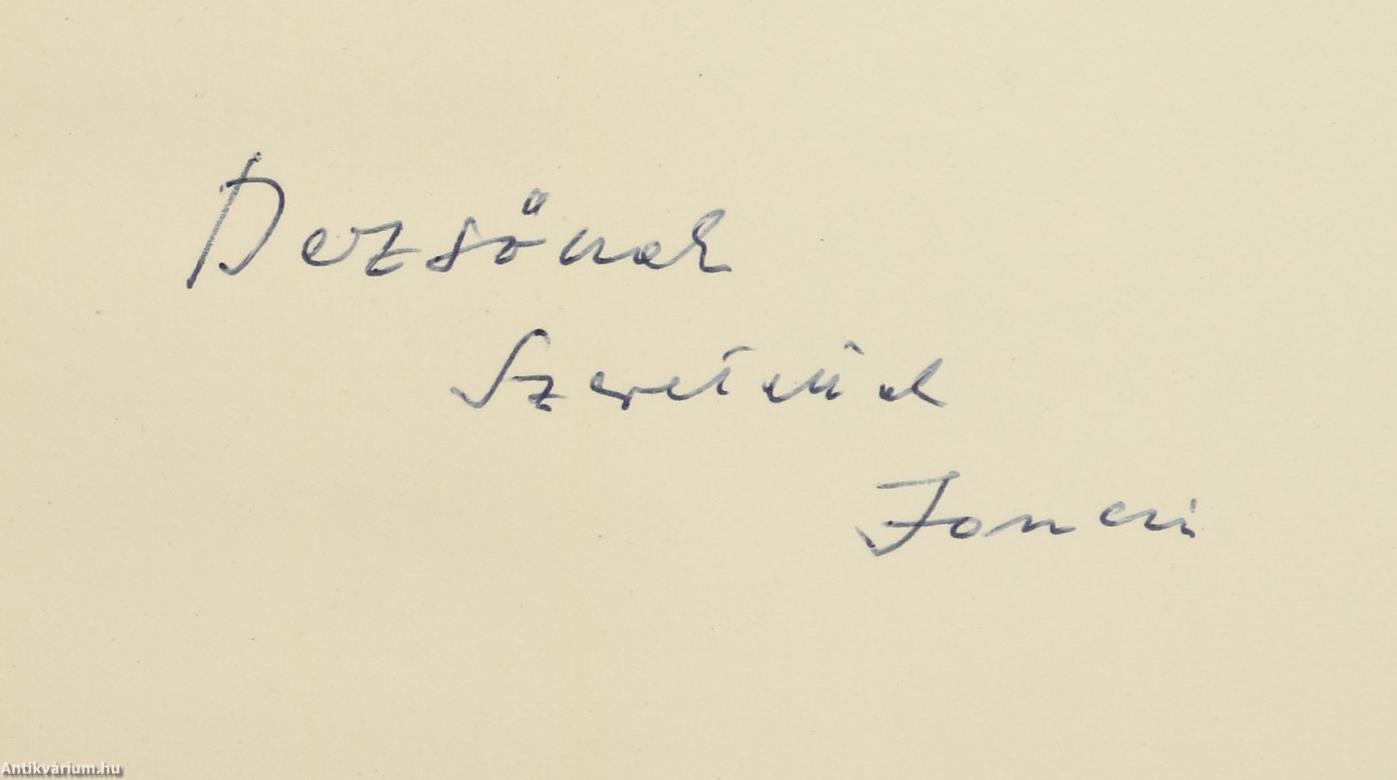 Dezsőnek
Szeretettel
Jancsi
Antikvárium.hu